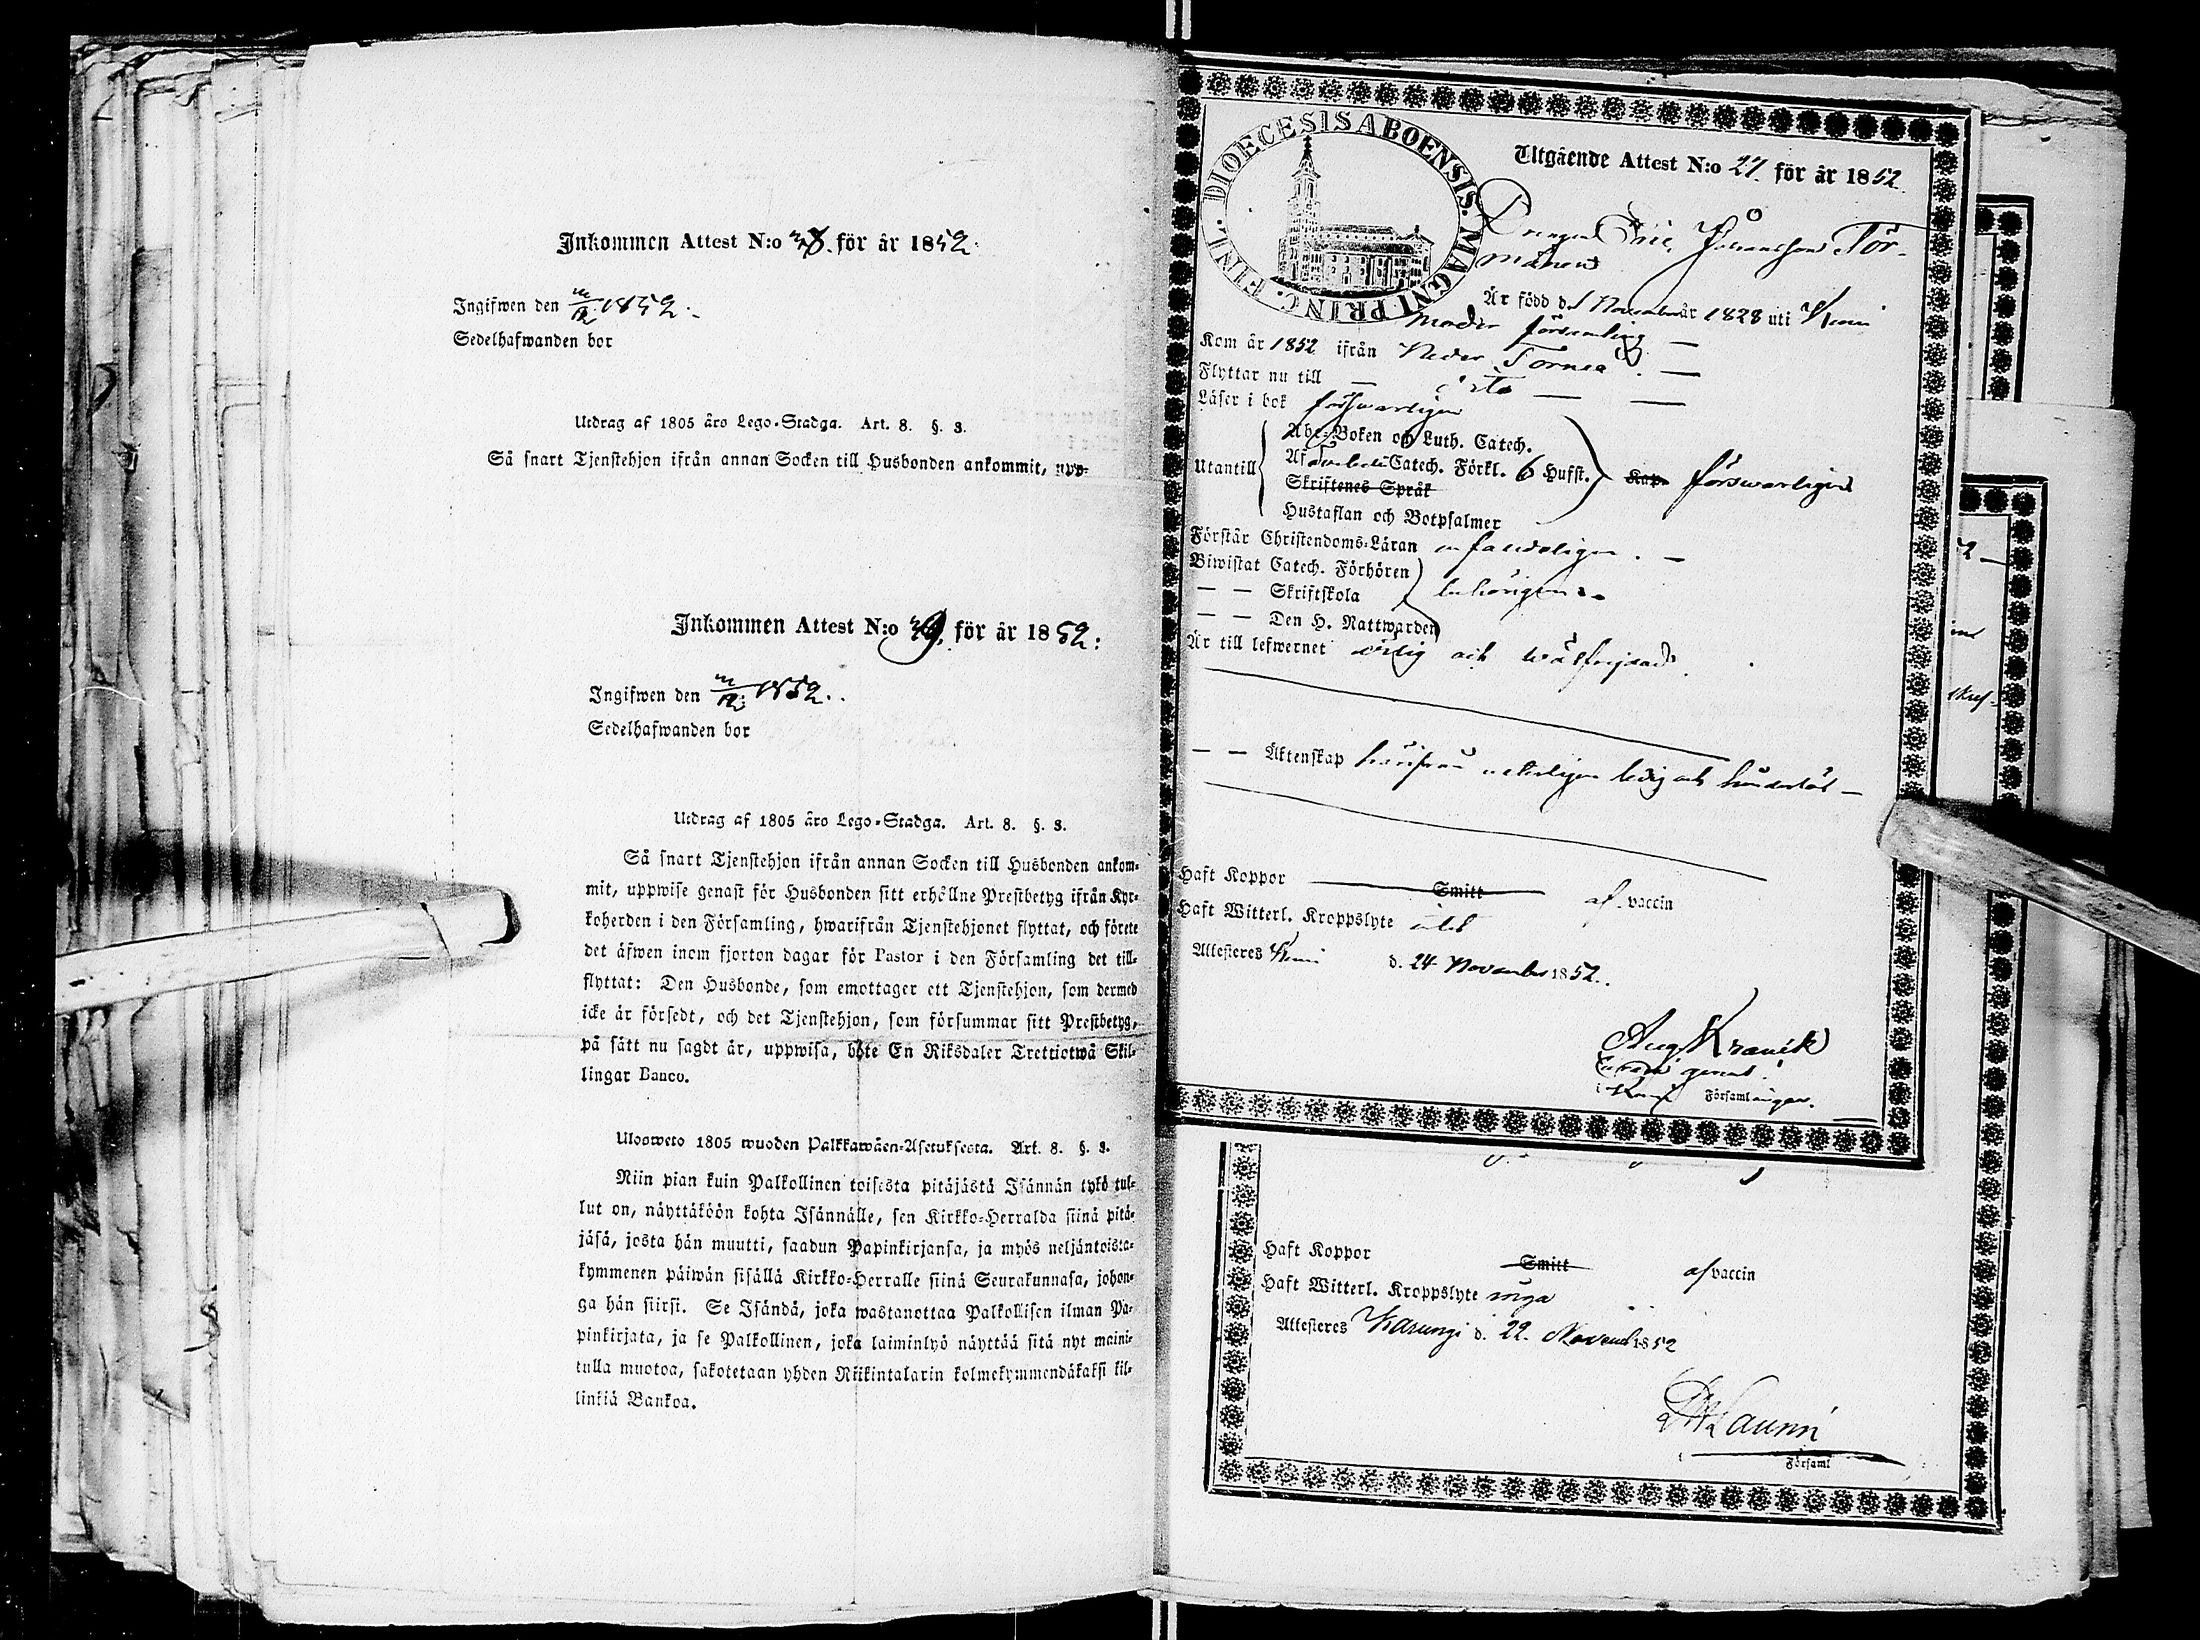 Inkommen Attest N:o 38. för år 1852.
Ingifwen den 1852.
Sedelhafwanden bor
Utdrag af 1805 års Lego-Stadga. Art. 8. §. 3.
Så snart Tjenstehjon ifrån annan Socken till Husbonden ankommit, upp-
Inkommen Attest N:o 39. för år 1852.
Ingifwen den 1852.
Sedelhafwanden bor
Utdrag af 1805 års Lego-Stadga. Art. 8. §. 3.
Så snart Tjenstehjon ifrån annan Socken till Husbonden ankom-
mit, uppwise genast för Husbonden sitt erhållne Prestbetyg ifrån Kyr-
koherden i den Församling, hwarifrån Tjenstehjonet flyttat, och förete
det äfwen inom fjorton dagar för Pastor i den Församling det till-
flyttat: Den Husbonde, som emottager ett Tjenstehjon, som dermed
icke är försedt, och det Tjenstehjon, som försummar sitt Prestbetyg,
på sätt nu sagdt är, uppwisa, böte En Riksdaler Trettiotwå Skil-
lingar Banco.
Ulosweto 1805 wuoden Palkkawäen-Asetuksesta. Art. 8. §. 3.
Niin pian kuin Palkollinen toisesta pitäjästä Isännän tykö tul-
lut on, näyttäköön kohta Isännälle, sen Kirkko-Herralda siinä pitä-
jäsä, josta hän muutti, saadun Papinkirjansa, ja myös neljäntoista-
kymmenen päiwän sisällä Kirkko-Herralle siinä Seurakunnasa, johon-
ga hän siirsi. Se Isändä, joka wastanottaa Palkollisen ilman Pa-
pinkirjata, ja se Palkollinen, joka laiminlyö näyttää sitä nyt maini-
tulla muotoa, sakotetaan yhden Riikintalarin kolmekymmendäkaksi kil-
linkiä Bankoa.
DIOECESIS ABOENSIS. MAGNI PRINC. FINL.
Utgående Attest N:o 27. för år 1852.
Drengen Eric Johansson Tör-
mänen
Är född d. 1 November år 1828 uti Kemi
moder församling
Kom år 1852 ifrån Neder Torneå
Flyttar nu till — dito —
Läser i bok förswarligen
Abc-Boken och Luth. Catech.
Utantill Af Catech. Förkl. 6 Hufst. Kap. förswarligen
Skriftenes Språk
Hustaflan och Botpsalmer
Förstår Christendoms-Läran
Biwistat Catech. Förhören
— — Skriftskola behörigen
— — Den H. Nattwarden
Är till lefwernet ärlig och wälfrejdad.
— — Äktenskap härifrån weterligen ledig och hinderlös —
Haft Koppor Smitt af vaccin
Haft Witterl. Kroppslyte
Attesteres Kemi d. 24 November 1852.
Aug Kranck
i Kemi Församlingar.
Haft Koppor Smitt af vaccin
Haft Witterl. Kroppslyte inga
Attesteres Karungi d. 22. Novemb 1852
Församl